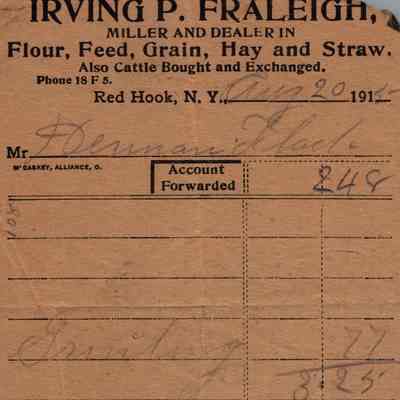 IRVING P. FRALEIGH,
MILLER AND DEALER IN
Flour, Feed, Grain, Hay and Straw.
Also Cattle Bought and Exchanged.
Phone 18 F 5.
Red Hook, N. Y., Aug 20 1915
Mr Herman
McCASKEY, ALLIANCE, O.
Account Forwarded 2 48
108
Grinding 77
3 25